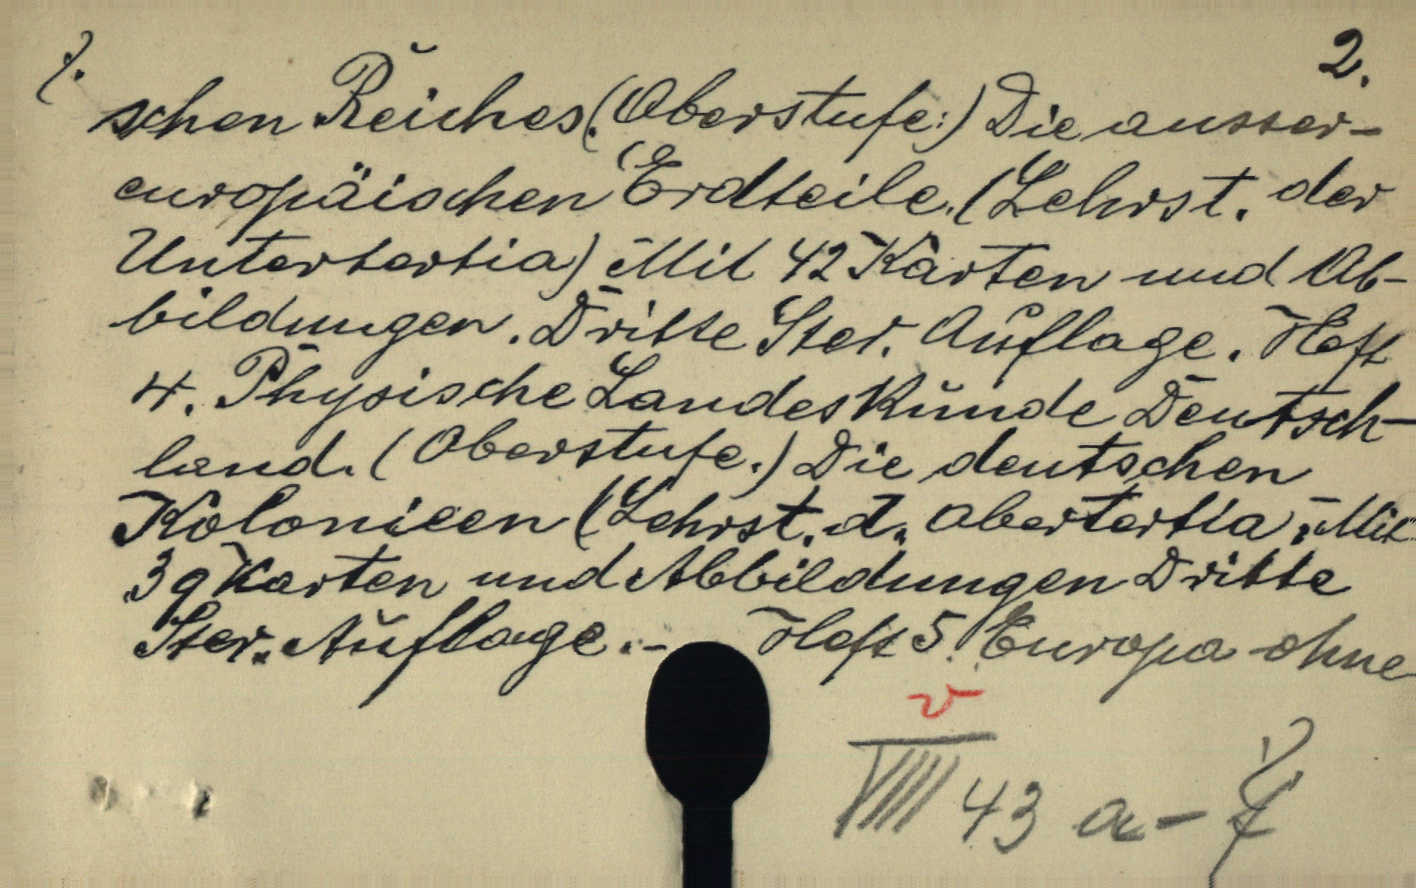 2.
schen Reiches (Oberstufe:) Die ausser-
europäischen Erdteile. (Lehrst. der
Untertertia) Mit 42 Karten und Ab-
bildungen. Dritte Ster. Auflage. Heft
4. Physische Landeskunde Deutsch-
land. (Oberstufe.) Die deutschen
Kolonieen (Lehrst. d. Obertertia. Mit
39 Karten und Abbildungen Dritte
Ster. Auflage. - Heft 5. Europa ohne
v
VIIII 43 a-f